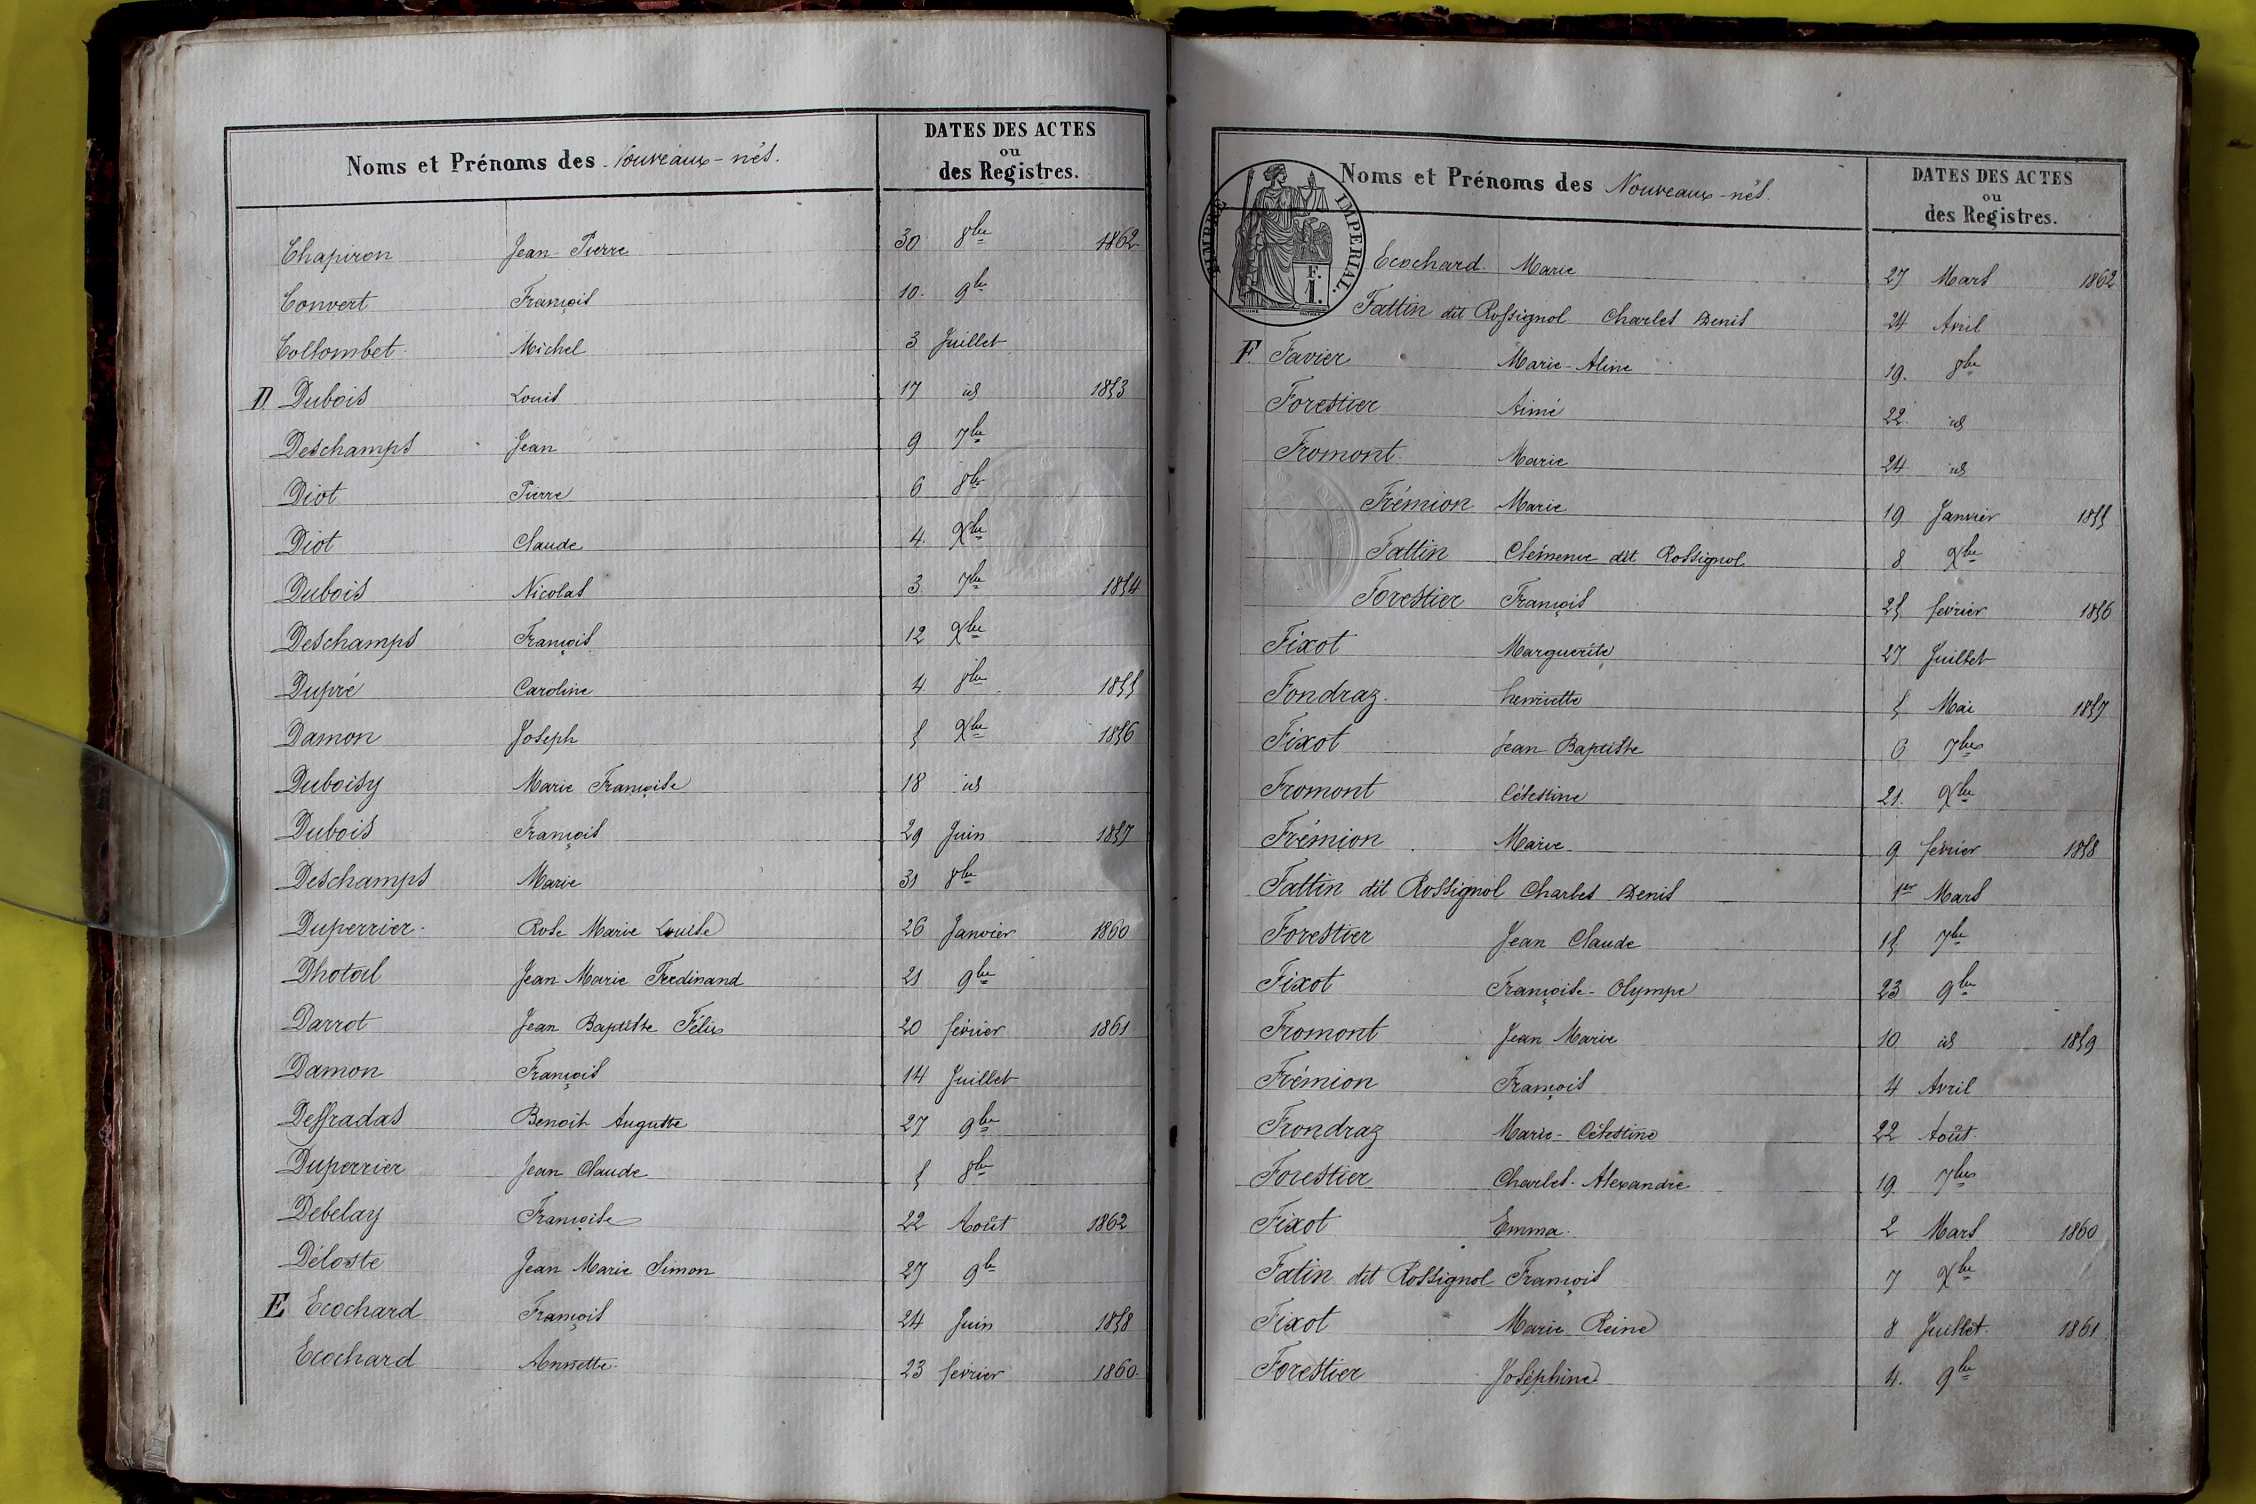 Noms et Prénoms des Nouveaux-nés.
DATES DES ACTES
ou
des Registres.
Chapiron Jean-Pierre 30 8bre 1862
Convert François 10. 9bre
Collombet Michel 3 Juillet
D. Dubois Louis 17 id 1853
Deschamps Jean 9 7bre
Diot Pierre 6 8bre
Diot Claude 4. Xbre
Dubois Nicolas 3 7bre 1854
Deschamps François 12 Xbre
Dupré Caroline 4 8bre 1855
Damon Joseph 5 Xbre 1856
Duboisy Marie Françoise 18 id
Dubois François 29 Juin 1857
Deschamps Marie 31 8bre
Duperrier Rose Marie Louise 26 Janvier 1860
Dhotal Jean Marie Ferdinand 21 9bre
Darrot Jean Baptiste Félix 20 février 1861
Damon François 14 Juillet
Deffradas Benoit Auguste 27 9bre
Duperrier Jean Claude 5 8bre
Debelay Françoise 22 Août 1862
Déloste Jean Marie Simon 27 9bre
E Ecochard François 24 Juin 1858
Ecochard Annette 23 février 1860
TIMBRE IMPERIAL.
F.
1.
Noms et Prénoms des Nouveaux-nés.
DATES DES ACTES
ou
des Registres.
Ecochard Marie 27 Mars 1862
Fattin dit Rossignol Charles Denis 24 Avril
F. Favier Marie-Aline 19. 8bre
Forestier Aimé 22. id
Fromont Marie 24 id
Frémion Marie 19 Janvier 1855
Fattin Clémence dit Rossignol 8 Xbre
Forestier François 25 février 1856
Fixot Marguerite 27 Juillet
Fondraz henriette 5 Mai 1857
Fixot Jean Baptiste 6 7bre
Fromont Célestine 21. Xbre
Frémion Marie 9 février 1858
Fattin dit Rossignol Charles Denis 1er Mars
Forestier Jean Claude 15 7bre
Fixot Françoise-Olympe 23 9bre
Fromont Jean Marie 10 id 1859
Frémion François 4 Avril
Frondraz Marie-Célestine 22 Août
Forestier Charles-Alexandre 19 7bre
Fixot Emma 2 Mars 1860
Fatin dit Rossignol François 7 Xbre
Fixot Marie Reine 8 Juillet 1861
Forestier Joséphine 4. 9bre